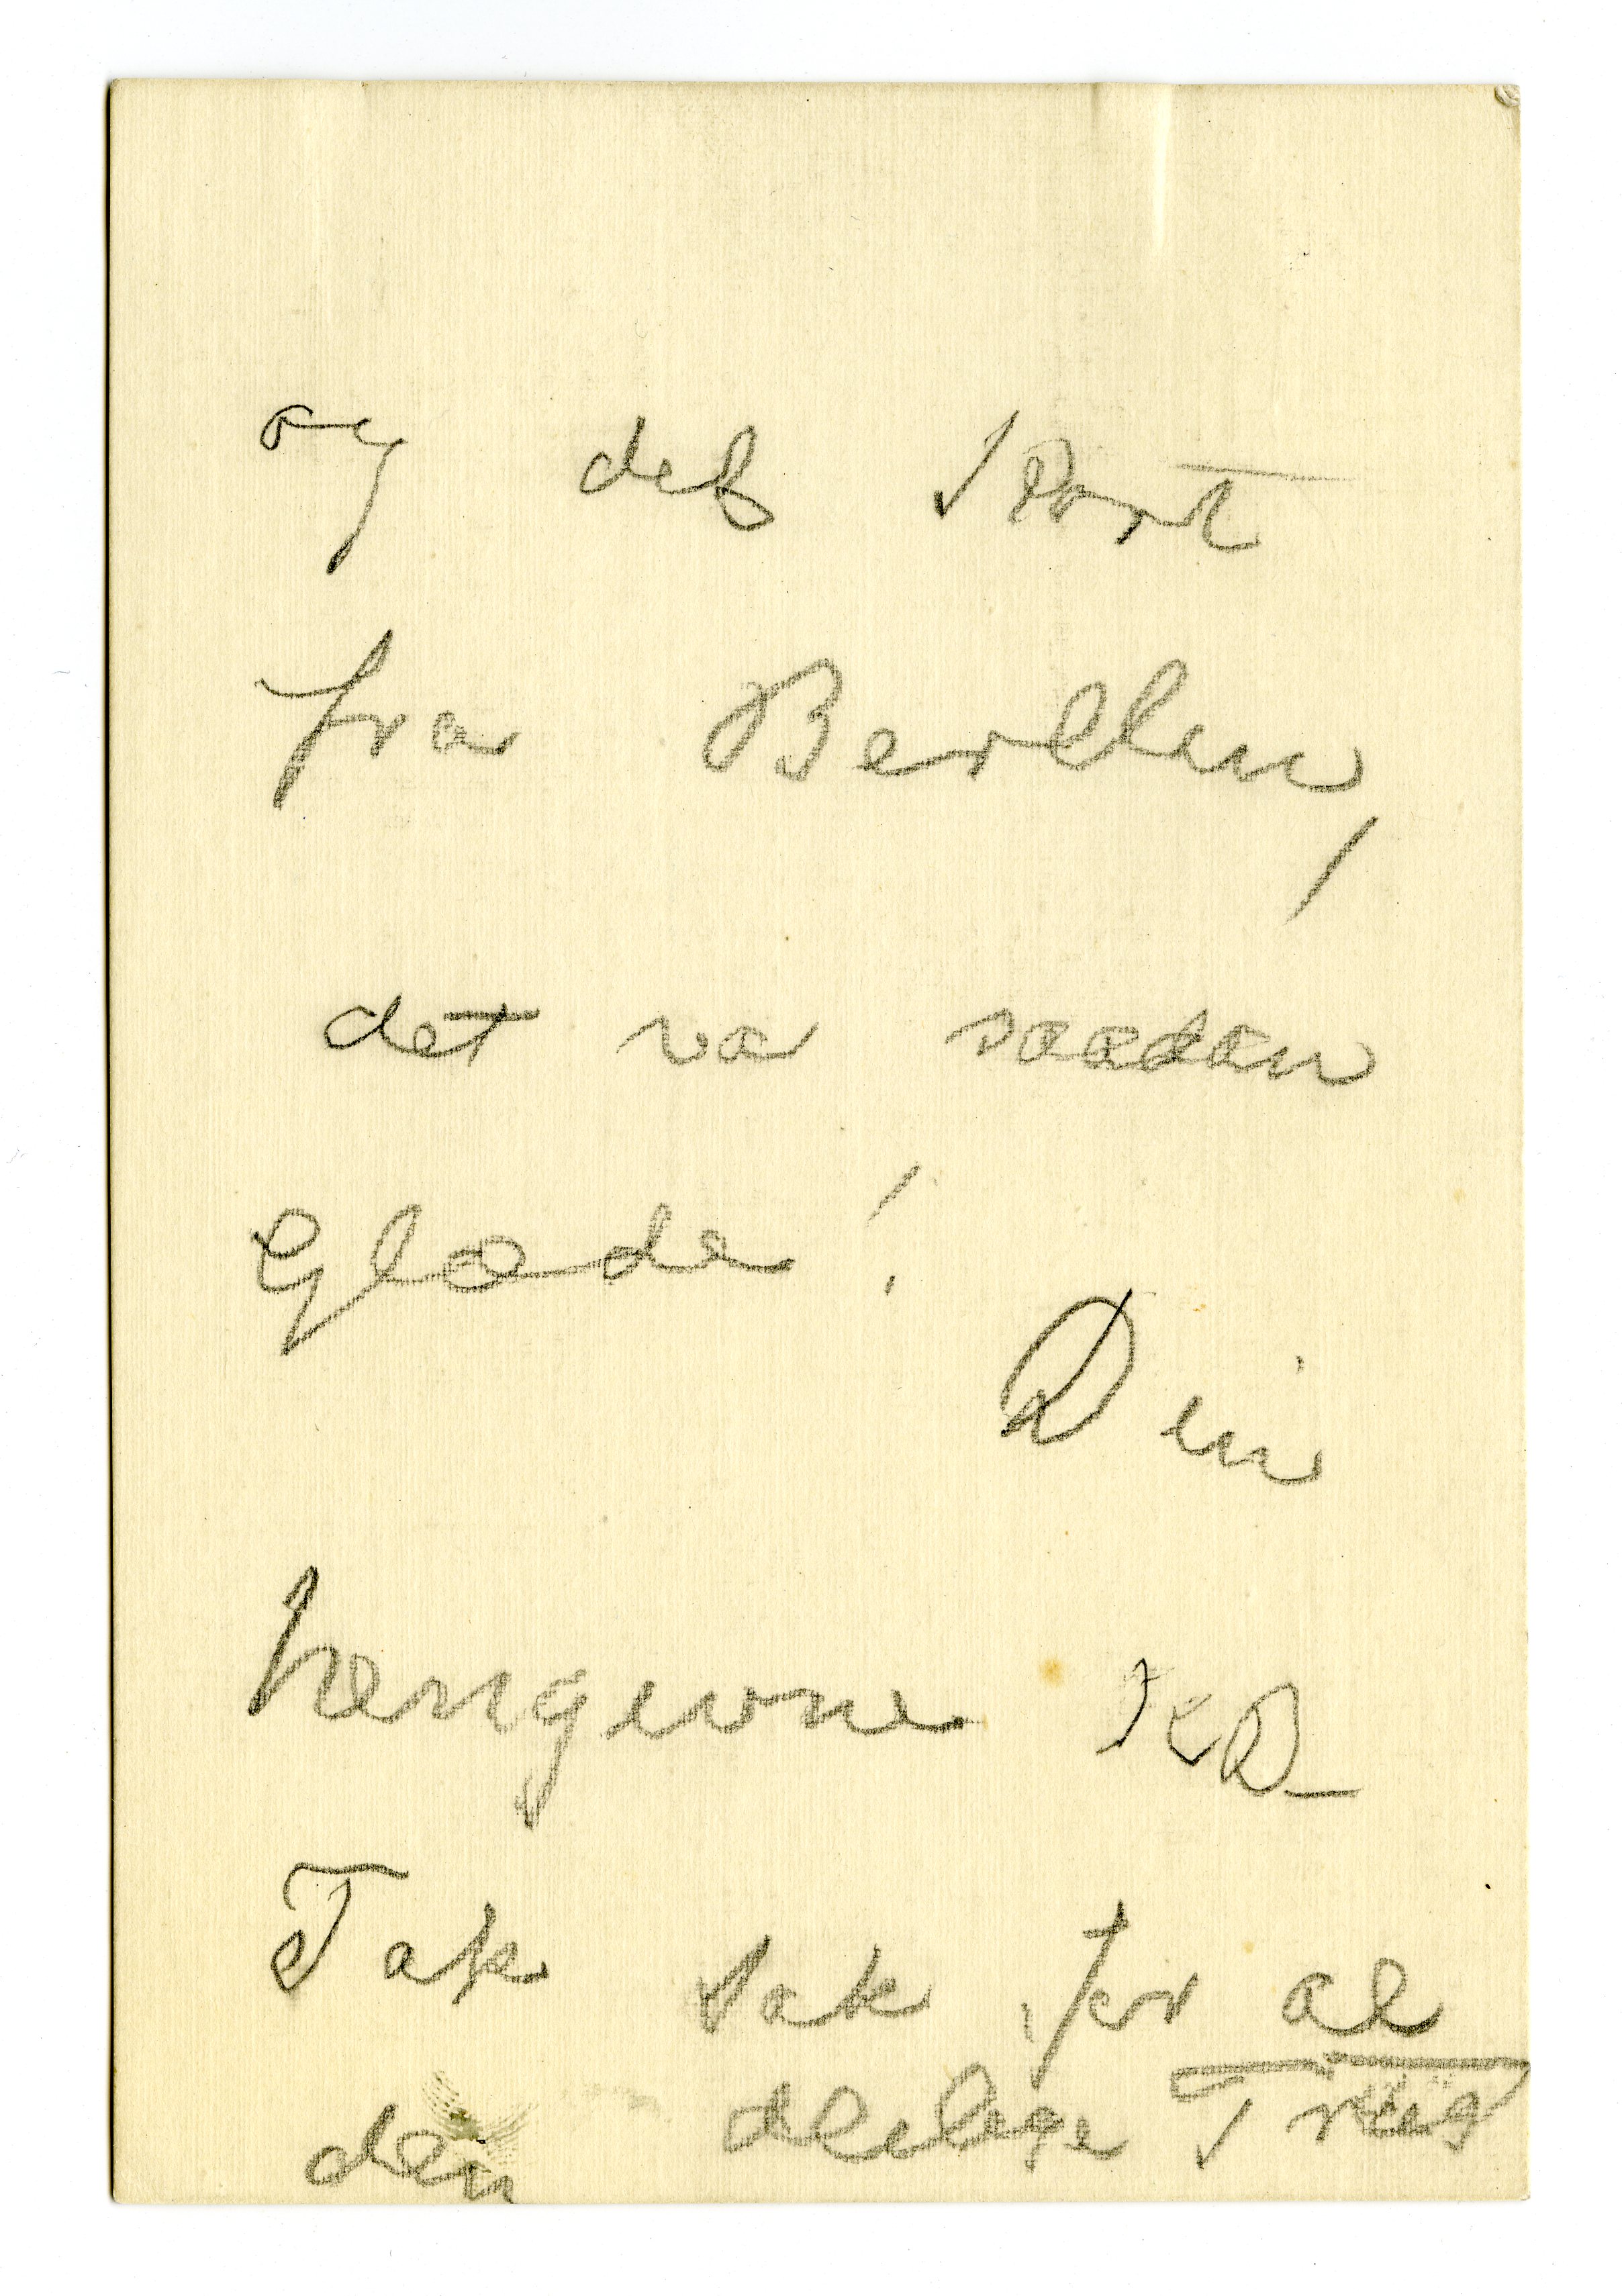 og det Kort
fra Berlin,
det var saadan
Glæde!
Din
hengivne
Tak tak for al
den deilige